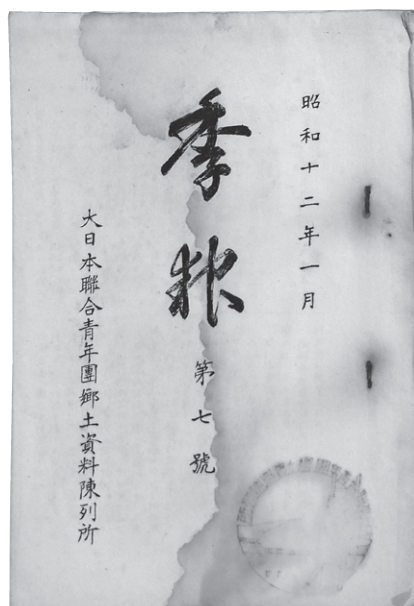 昭和十二年一月
季報
第七號
大日本聯合青年團郷土資料陳列所